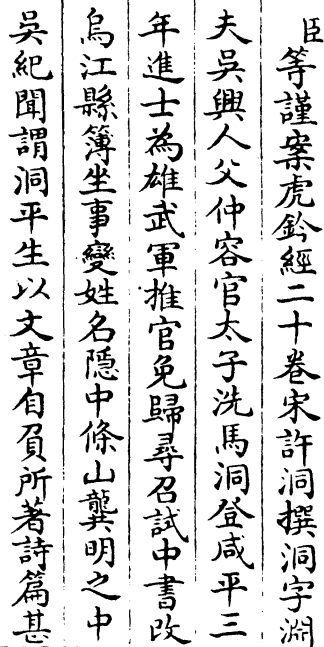 臣等謹案虎鈐經二十卷宋許洞撰洞字淵
夫吳興人父仲容官太子洗馬洞登咸平三
年進士為雄武軍推官免歸尋召試中書改
烏江縣簿坐事變姓名隱中條山龔明之中
吳紀聞謂洞平生以文章自負所著詩篇甚